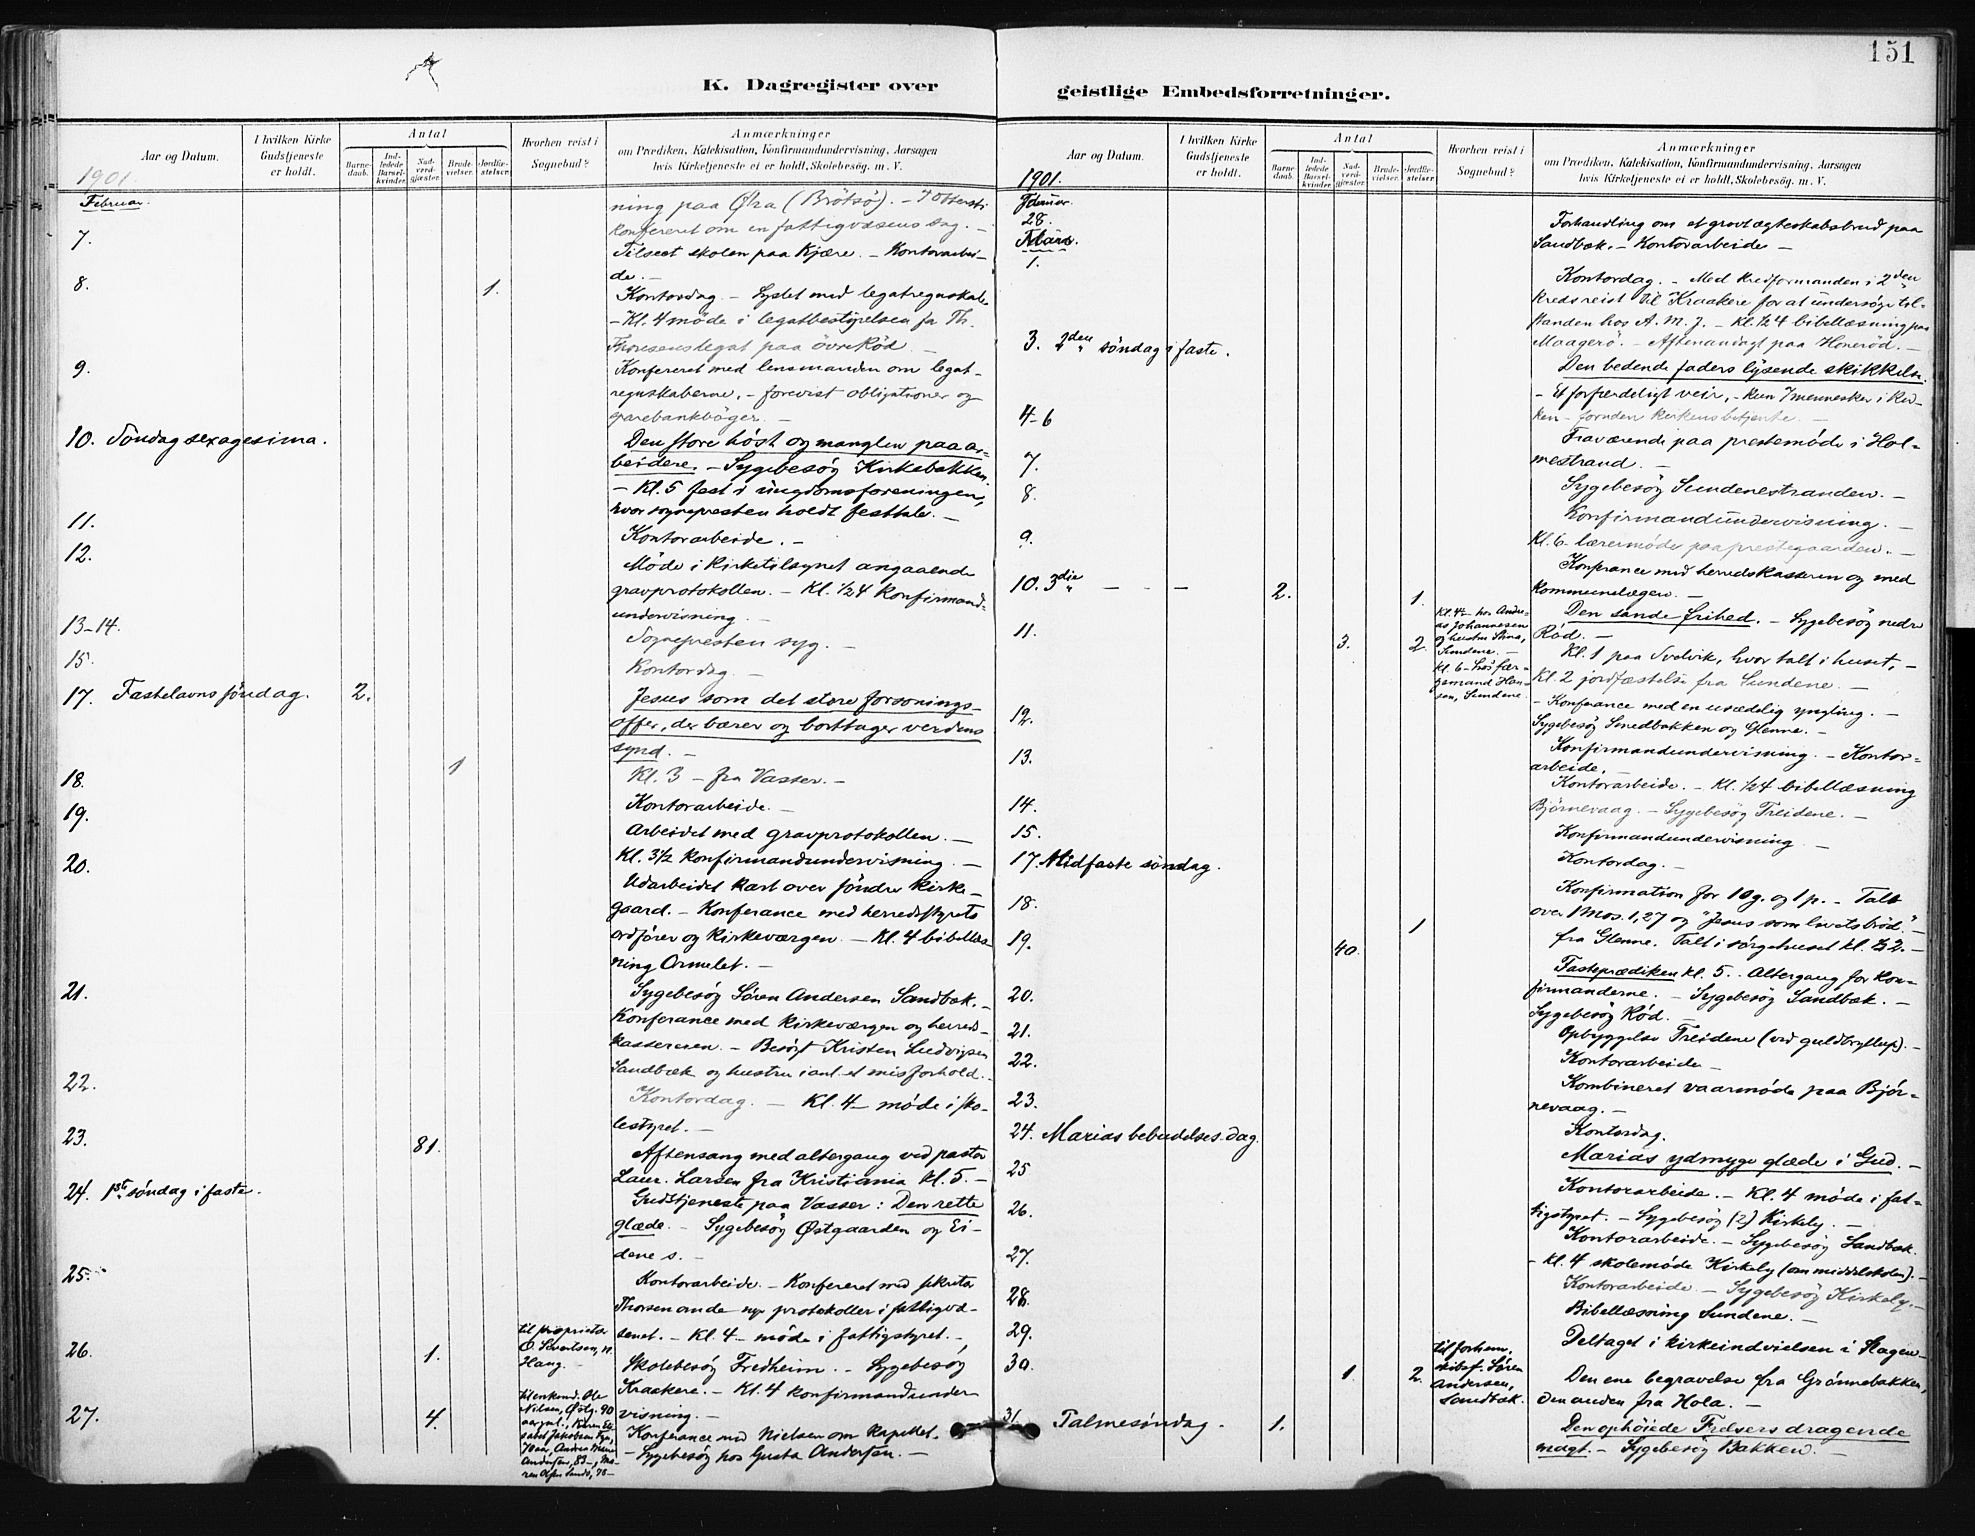 151
K. Dagregister over
geistlige Embedsforretninger.
Aar og Datum.
I hvilken Kirke
Gudstjeneste
er holdt.
Antal
Barne-
daab.
Ind-
ledede
Barsel-
kvinder.
Nad-
verd-
gjæster.
Brude-
vielser.
Jordfæ-
stelser.
Hvorhen reist i
Sognebud?
Anmærkninger
om Prædiken, Katekisation, Konfirmandundervisning, Aarsagen
hvis Kirketjeneste ei er holdt, Skolebesøg. m. V.
1901.
Februar.
ning paa Øra (Brötsö). –
konfereret om en fattigvæsens sag. –
7.
Tilseet skolen paa Kjære. – Kontorarbei-
de. –
8.
1.
Kontordag – Syslet med legatregnskab.
– Kl. 4 møde i legatbestyrelsen fa Th.
Thoresens legat paa övre Röd. –
9.
Konfereret med lensmanden om legat-
regnskaberne, – forevist obligationer og
sparebankbøger. –
10. Søndag sexagesima.
Den store höst og manglen paa ar-
beidere. – Sygebesög Kirkebakken.
– Kl. 5 fest i ungdomsforeningen,
hvor sognepresten holdt festtale. –
11.
Kontorarbeide. –
12.
Møde i kirketilsynet angaaende
gravprotokollen. – Kl. 1/2 4 konfirmand-
undervisning. –
13–14.
Sognepresten syg. –
15.
Kontordag. –
17. Fastelavns søndag. 2.
Jesus som det store forsonings-
offer, der bærer og borttager verdens
synd. –
18.
1
Kl. 3 – fra Vasser. –
19.
Kontorarbeide. –
Arbeidet med gravprotokollen. –
Kl. 3 1/2 konfirmandundervisning. –
20.
Udarbeidet kart over søndre kirke-
gaard. – Konferance med herredstyrets
ordfører og kirkeværgen. – Kl. 4 bibellæs-
ning Ormelet. –
21.
Sygebesög Søren Andersen Sandbæk. –
Konferance med kirkeværgen og herreds-
kassereren. – Besögt Kristen Ludvigsen
Sandbæk og hustru i anl. et misforhold. –
22.
Kontordag. – Kl. 4 – møde i sko-
lestyret. –
23.
81.
Aftensang med altergang ved pastor
Laur. Larsen fra Kristiania kl. 5. –
24. 1ste søndag i faste.
Gudstjeneste paa Vasser: Den rette
glæde. – Sygebesög Østgaarden og Ei-
dene s. –
25.
Kontorarbeide. – Konfereret med sekretær
Thorsen om de nye protokoller i fattigvæ-
senet. – Kl. 4 – møde i fattigstyret. –
26.
1.
til proprietær
O. Sivertsen, n.
Haug.
Skolebesög Fredheim. – Sygebesög
Kraakere. – Kl. 4 konfirmandunder-
visning. –
27.
4.
til enkem. Ole
Nilsen, Østg. 90
aar gml., Karen Eli-
sabet Jakobsen
70 aar,
Andersen, 83
ren Olsen Sande, 78 –
Konferance med Nielsen om kapellet.
– Sygebesög hos Gusta Andersen. –
Aar og Datum.
I hvilken Kirke
Gudstjeneste
er holdt.
Antal
Barne-
daab.
Ind-
ledede
Barsel-
kvinder.
Nad-
verd-
gjæster.
Brude-
vielser.
Jordfæ-
stelser.
Hvorhen reist i
Sognebud?
Anmærkninger
om Prædiken, Katekisation, Konfirmandundervisning, Aarsagen
hvis Kirketjeneste ei er holdt, Skolebesøg. m. V.
1901.
28.
Forhandling om et grovt ægteskabsbrud paa
Sandbæk. – Kontorarbeide –
Mars.
1.
Kontordag. – Med kredsformanden i 2den
kreds reist til Kraakere for at undersøge til-
standen hos A. M. J. – Kl. 1/2 4 bibellæsning paa
Maagerö. – Aftenandagt paa Honeröd. –
3. 2den søndag i faste.
Den bedende faders lysende skikkelse.
– Et forfærdeligt veir, – kun 7 mennesker i kir-
ken – foruden kirkens betjente. –
4–6
Fraværende paa prestemøde i Hol-
mestrand. –
7.
Sygebesög Sundenestranden. –
8.
Konfirmandundervisning. –
Kl. 6 – lærermøde paa prestegaarden. –
9.
Konferance med herredskasseren og med
kommunelægen. –
10. 3die „ – – – 2. 1.
Den sande frihed. – Sygebesög nedre
Röd. –
11.
3. 2.
Kl. 4 – hos Andre-
as Johannesen
og hustru Stina,
Sundene. –
kl. 6 – hos fær-
gemand Han-
sen, Sundene.
Kl. 1 paa Svelvik, hvor talt i huset, –
Kl. 2 jordfæstelse fra Sundene. –
– Konferance med en usædelig yngling. –
12.
Sygebesög Smedbakken og Glenne. –
Konfirmandundervisning. – Kontor-
arbeide. –
13.
Kontorarbeide. – Kl. 1/2 4 bibellæsning
Bjørnevaag. – Sygebesög Treidene. –
14.
Konfirmandundervisning –
15.
Kontordag. –
17. Midfaste søndag.
Konfirmation for 10 g. og 1 p. – Talt
over 1 Mos. 1, 27 og "Jesus som livets bröd." –
18.
1
fra Glenne. Talt i sørgehuset kl. 1/2 2. –
19.
40.
Fasteprædiken kl. 5. Altergang for kon-
firmanderne. – Sygebesög Sandbæk. –
20.
Sygebesög Röd. –
21.
Opbyggelse Treidene (ved guldbryllup). –
22.
Kontorarbeide –
Kombineret vaarmøde paa Bjør-
nevaag. –
23.
Kontordag.
24. Marias bebudelses dag.
Marias ydmyge glæde i Gud. –
25
Kontorarbeide. – Kl. 4 møde i fat-
tigstyret. – Sygebesög (2) Kirkely. –
26.
Kontorarbeide. – Sygebesög Sandbæk.
– Kl. 4 skolemøde Kirkely (om middelskolen). –
27.
Kontorarbeide – Sygebesög Kirkely. –
28.
Bibellæsning Sundene. –
29.
Deltaget i kirkeindvielsen i Slagen –
30.
1 2.
til forhenv.
skibsf. Søren
Andersen,
Sandbæk.
Den ene begravelse fra Grønnebakken,
den anden fra Hola. –
31. Palmesøndag. 1.
Den ophøiede Frelsers dragende
magt. – Sygebesög Bakken. –